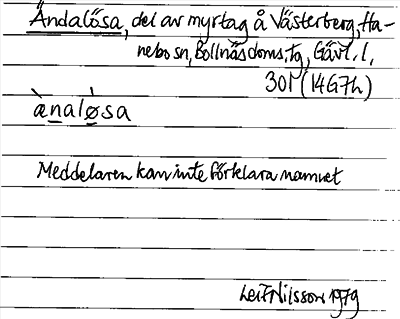 Ändalösa, del av myrtag å Västerberg, Ha-
nebo sn, Bollnäs doms. tg, Gävl. l,
301 (14G7h)
ànaløsa
Meddelaren kan inte förklara namnet
Leif Nilsson 1979